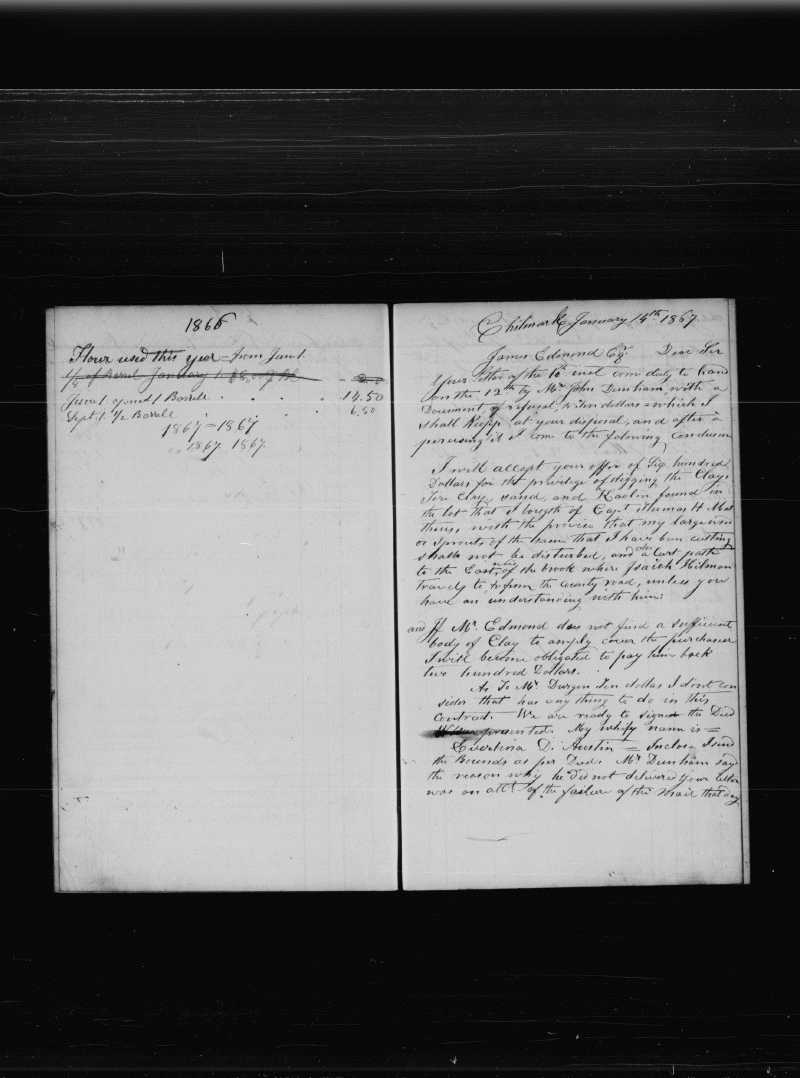 1866
Flour used this year = from Jan 1.
1/4 of barrel January 1.
June 1. opened 1 Barrele . . . . 14.50
Sept. 1. 1/2 Barrele . . . 6.50
1867 = 1867
1867. 1867.
Chilmark January 14th 1867.
James Edmond Esq. Dear Sir
Your letter of the 10th inst com duly to hand
on the 12th by Mr John Dunham with a
Document of refusal, & Ten dollars = which I
shall keep at your disposal, and after a
perusing it I come to the folowing conclusion
I will accept your offer of Six hundred
Dollars for the privilege of digging the Clay,
Fire Clay, sand, and Kaolin found in
the lot that I bought of Capt Thomas H Mat
thews, with the proviso that my large vine
or sprouts of the same that I have been cutting
shall not be disturbed, and also a Cart path
to the East side of the brook where Isaiah Hilman
travels to & from the county road, unless you
have an understanding with him:
and If Mr. Edmond does not find a sufficient
body of Clay to amply cover the purchase
I will become obligated to pay him back
two hundred Dollars.
As To Mr. Durgon Ten dollas I dont con
sider that has any thing to do in this
contract. We are ready to signed the Deed
When presented. My whify name is =
Evertina D. Austin = Inclose I send
the Bounds as per Deed. Mr Dunham say
the reason why he did not delivered your letter
was on actt of the failure of the Mail that day